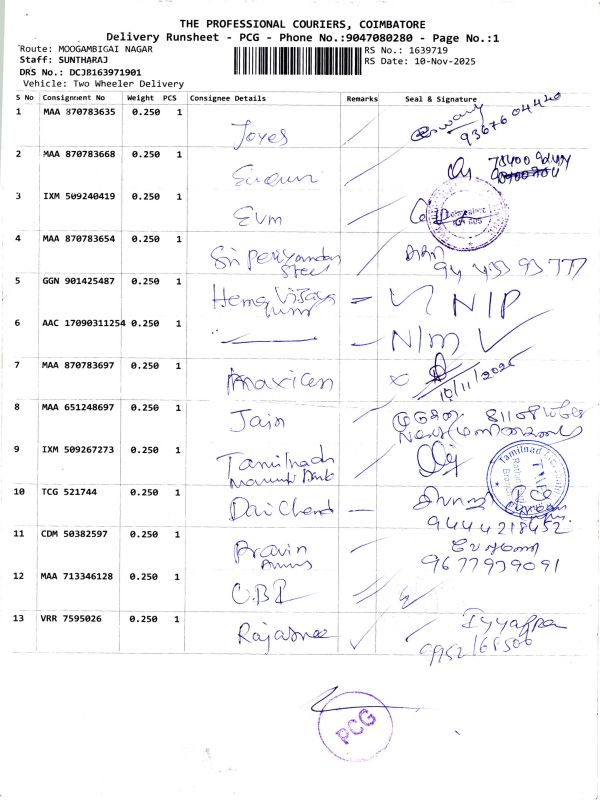 THE PROFESSIONAL COURIERS, COIMBATORE
Delivery Runsheet - PCG - Phone No.:9047080280 - Page No.:1
Route: MOOGAMBIGAI NAGAR RS No.: 1639719
Staff: SUNTHARAJ RS Date: 10-Nov-2025
DRS No.: DCJ8163971901
Vehicle: Two Wheeler Delivery
S No Consignment No Weight PCS Consignee Details Remarks Seal & Signature
1 MAA 870783635 0.250 1 Joyes 9367604420
2 MAA 870783668 0.250 1
3 IXM 509240419 0.250 1 Evm
4 MAA 870783654 0.250 1 Sri Periyandavar Steel 94 433 93 777
5 GGN 901425487 0.250 1 Hema Vijaya N/P
6 AAC 17090311254 0.250 1 N/m
7 MAA 870783697 0.250 1 10/11/2025
8 MAA 651248697 0.250 1 Jain
9 IXM 509267273 0.250 1 Tamilnadu Bank Tamilnad TMB
10 TCG 521744 0.250 1 Chand 9444218452
11 CDM 50382597 0.250 1 Pravin 9677939091
12 MAA 713346128 0.250 1
13 VRR 7595026 0.250 1 Rajasree Iyyappa
9952168500
PCG